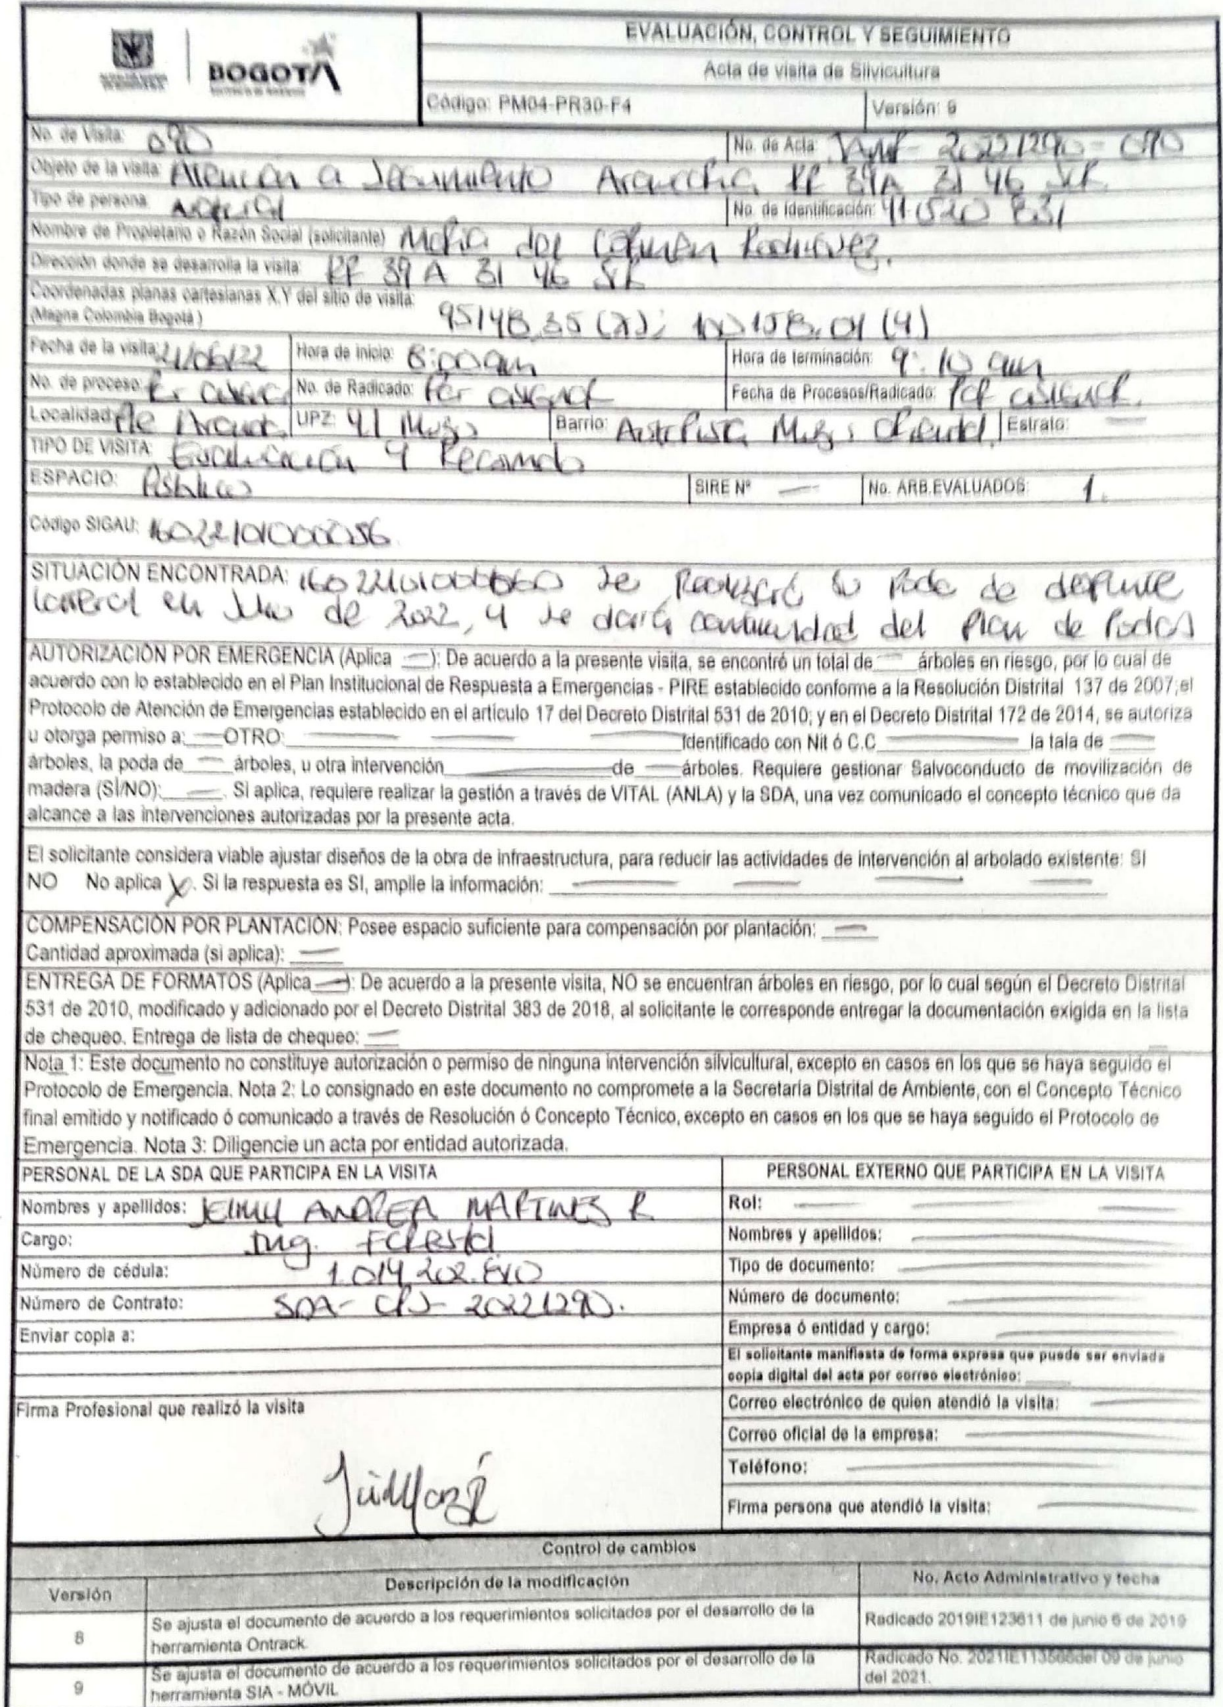 BOGOTÁ
EVALUACIÓN, CONTROL Y SEGUIMIENTO
Acta de visita de Silvicultura
Código: PM04-PR30-F4 Versión: 9
No. de Visita: 090 No. de Acta: 20221290-090
Objeto de la visita: Atención a KR 39A 31 46 SUR
Tipo de persona: Natural No. de Identificación: 41520831
Nombre de Propietario o Razón Social (solicitante) Maria del Carmen Rodriguez.
Dirección donde se desarrolla la visita: KR 39 A 31 46 SUR
Coordenadas planas cartesianas X,Y del sitio de visita:
(Magna Colombia Bogotá) 95148.35 (X); 100158.01 (Y)
Fecha de la visita: 21/06/22 Hora de inicio: 8:00am Hora de terminación: 9:10 am
No. de proceso: Por asignar No. de Radicado: Por asignar Fecha de Procesos/Radicado: Por asignar.
Localidad: Pte Aranda UPZ: 41 Muzu Barrio: Autopista Muzu Oriental Estrato:
TIPO DE VISITA: Evaluación y
ESPACIO: Público SIRE Nº No. ARB.EVALUADOS: 1.
Código SIGAU: 16022101000056
SITUACIÓN ENCONTRADA: Se Realizará su Poda de despunte
lateral en de 2022, y se dará continuidad del Plan de Podas
AUTORIZACIÓN POR EMERGENCIA (Aplica ): De acuerdo a la presente visita, se encontró un total de árboles en riesgo, por lo cual de
acuerdo con lo establecido en el Plan Institucional de Respuesta a Emergencias - PIRE establecido conforme a la Resolución Distrital 137 de 2007;el
Protocolo de Atención de Emergencias establecido en el artículo 17 del Decreto Distrital 531 de 2010; y en el Decreto Distrital 172 de 2014, se autoriza
u otorga permiso a: OTRO: Identificado con Nit ó C.C la tala de
árboles, la poda de árboles, u otra intervención de árboles. Requiere gestionar Salvoconducto de movilización de
madera (SÍ/NO): . Si aplica, requiere realizar la gestión a través de VITAL (ANLA) y la SDA, una vez comunicado el concepto técnico que da
alcance a las intervenciones autorizadas por la presente acta.
El solicitante considera viable ajustar diseños de la obra de infraestructura, para reducir las actividades de intervención al arbolado existente: SI
NO No aplica X. Si la respuesta es SI, amplie la información:
COMPENSACIÓN POR PLANTACIÓN: Posee espacio suficiente para compensación por plantación:
Cantidad aproximada (si aplica):
ENTREGA DE FORMATOS (Aplica ): De acuerdo a la presente visita, NO se encuentran árboles en riesgo, por lo cual según el Decreto Distrital
531 de 2010, modificado y adicionado por el Decreto Distrital 383 de 2018, al solicitante le corresponde entregar la documentación exigida en la lista
de chequeo. Entrega de lista de chequeo:
Nota 1: Este documento no constituye autorización o permiso de ninguna intervención silvicultural, excepto en casos en los que se haya seguido el
Protocolo de Emergencia. Nota 2: Lo consignado en este documento no compromete a la Secretaría Distrital de Ambiente, con el Concepto Técnico
final emitido y notificado ó comunicado a través de Resolución ó Concepto Técnico, excepto en casos en los que se haya seguido el Protocolo de
Emergencia. Nota 3: Diligencie un acta por entidad autorizada.
PERSONAL DE LA SDA QUE PARTICIPA EN LA VISITA PERSONAL EXTERNO QUE PARTICIPA EN LA VISITA
Nombres y apellidos: JEIMMY ANDREA MARTINES R Rol:
Cargo: Ing. Forestal Nombres y apellidos:
Número de cédula: 1.014.202. Tipo de documento:
Número de Contrato: SDA-CPS-20221290. Número de documento:
Enviar copia a: Empresa ó entidad y cargo:
El solicitante manifiesta de forma expresa que puede ser enviada
copia digital del acta por correo electrónico:
Firma Profesional que realizó la visita Correo electrónico de quien atendió la visita:
Correo oficial de la empresa:
Teléfono:
Firma persona que atendió la visita:
Control de cambios
Versión Descripción de la modificación No. Acto Administrativo y fecha
8 Se ajusta el documento de acuerdo a los requerimientos solicitados por el desarrollo de la herramienta Ontrack Radicado 2019IE123611 de junio 6 de 2019
9 Se ajusta el documento de acuerdo a los requerimientos solicitados por el desarrollo de la herramienta SIA - MÓVIL Radicado No. 2021IE113566del 09 de junio del 2021.